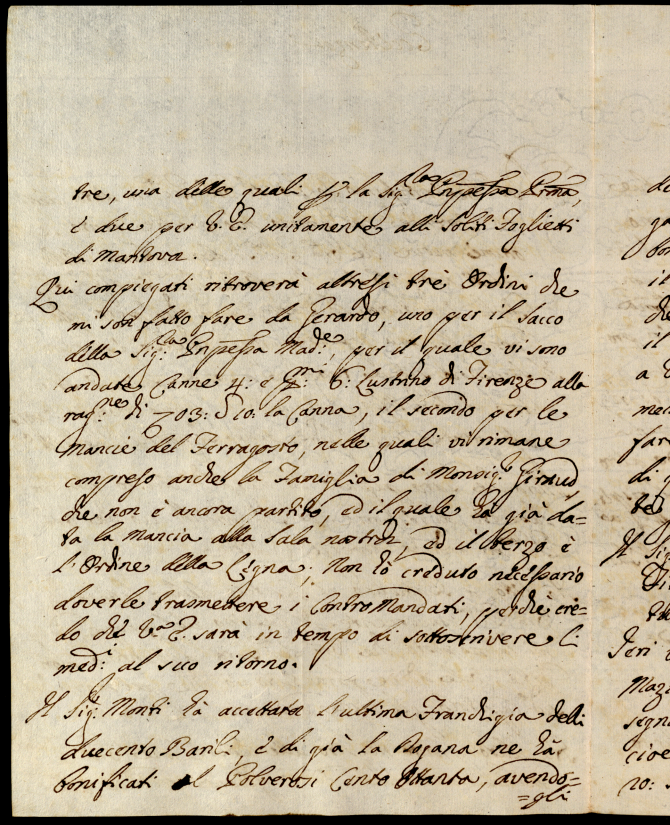 tre, una delle quali p. la Sig.ra Pnpessa Prma,
e due per V. E. unitamente alli soliti Foglietti
di Mantova.
Qui compiegati ritroverà altresì trè Ordini che
mi son fatto fare da Gerardo, uno per il sacco
della Sig.ra Pnpessa Mad.e, per il quale vi sono
andate Canne 4: e p.mi 6: Lustrino di Firenze alla
rag.ne di 703: la Canna, il secondo per le
Mancie del Ferragosto, nelle quali vi rimane
compreso anche la Famiglia di Monsig.r Giraud,
che non è ancora partito, ed il quale hà già da=
ta la Mancia alla Sala nostra, ed il terzo è
l'Ordine della Legna; Non hò creduto necessario
doverle trasmettere i ControMandati, perche cre=
do che V.ra E. sarà in tempo di sottoscrivere li
med.i al suo ritorno.
Il Sig.r Monti hà accettata l'ultima Franchigia delli
duecento Barili, e di già la Dogana ne hà
bonificati al Polverosi Cento Ottanta, avendo=
=gli
de
il
che
il
a
mer
far
di
Il Sig
Jeri
Maz
segn
cioe
no: